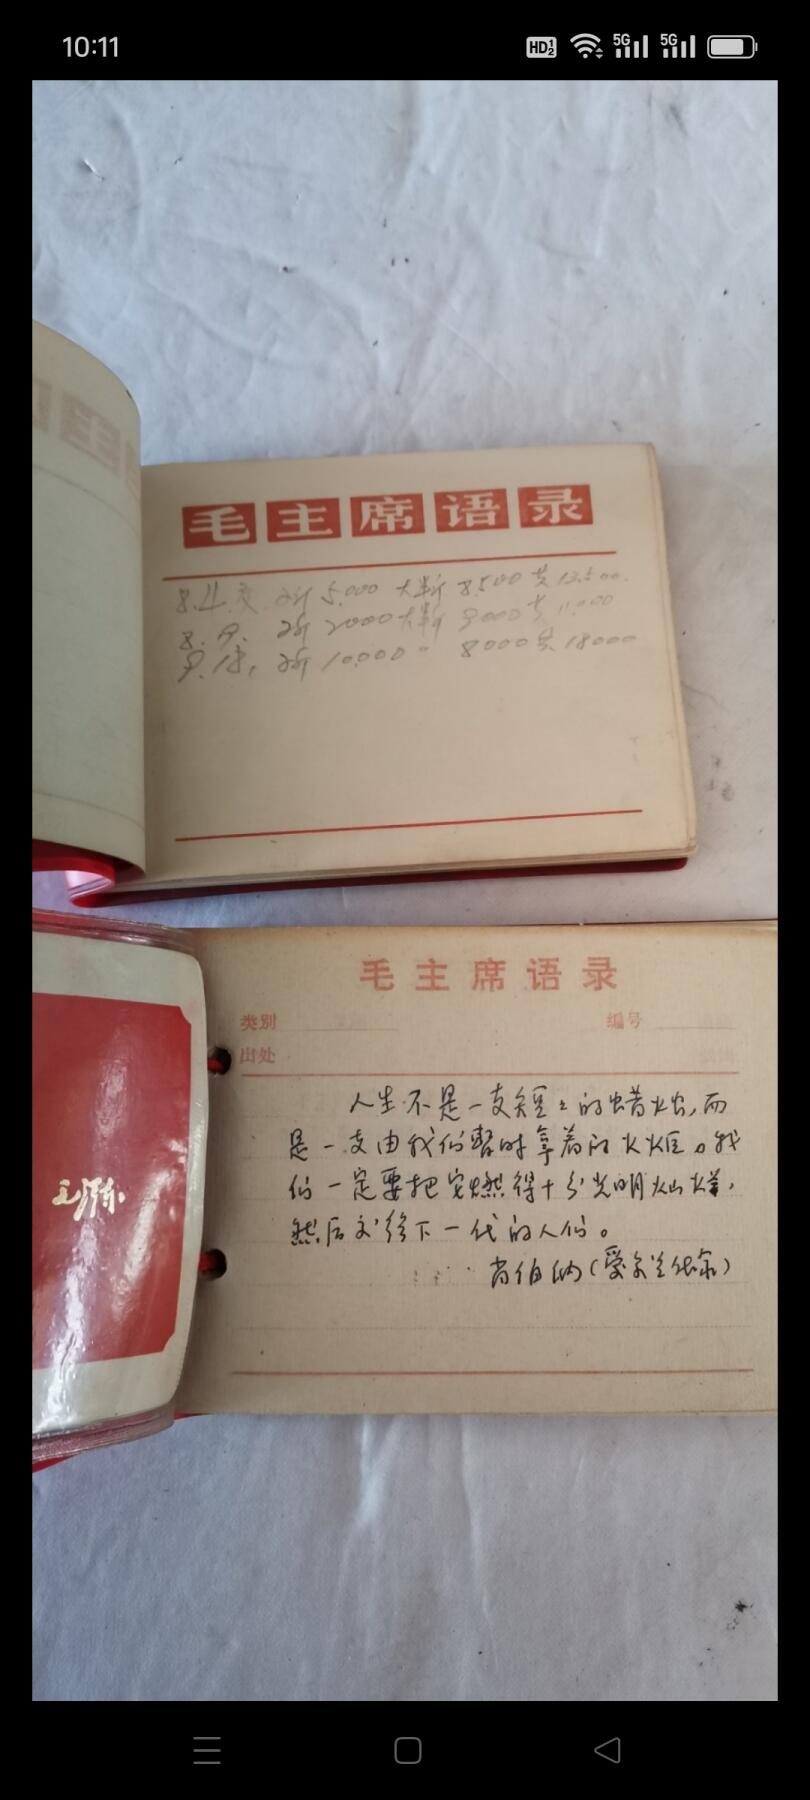 10:11
HD 1 2 5G 5G
毛主席语录
8.4.交 5.000 大斩 8.500 共 13.500.
8.9. 2000 大斩 9000 共 11.000
10.000 〃 8000 共 18000
毛主席语录
类别 编号
出处
人生不是一支短々的蜡烛,而
是一支由我们暂时拿着的火炬。我
们一定要把它燃得十分光明灿烂,
然后交给下一代的人们。
肖伯纳(爱尔兰作家)
毛泽东